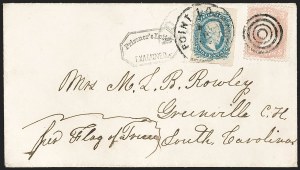 Prisoner's Letter
EXAMINED
POINT LO
Mrs M. L. R. Rowley
Greenville C. H
South Carolina
per Flag of Truce